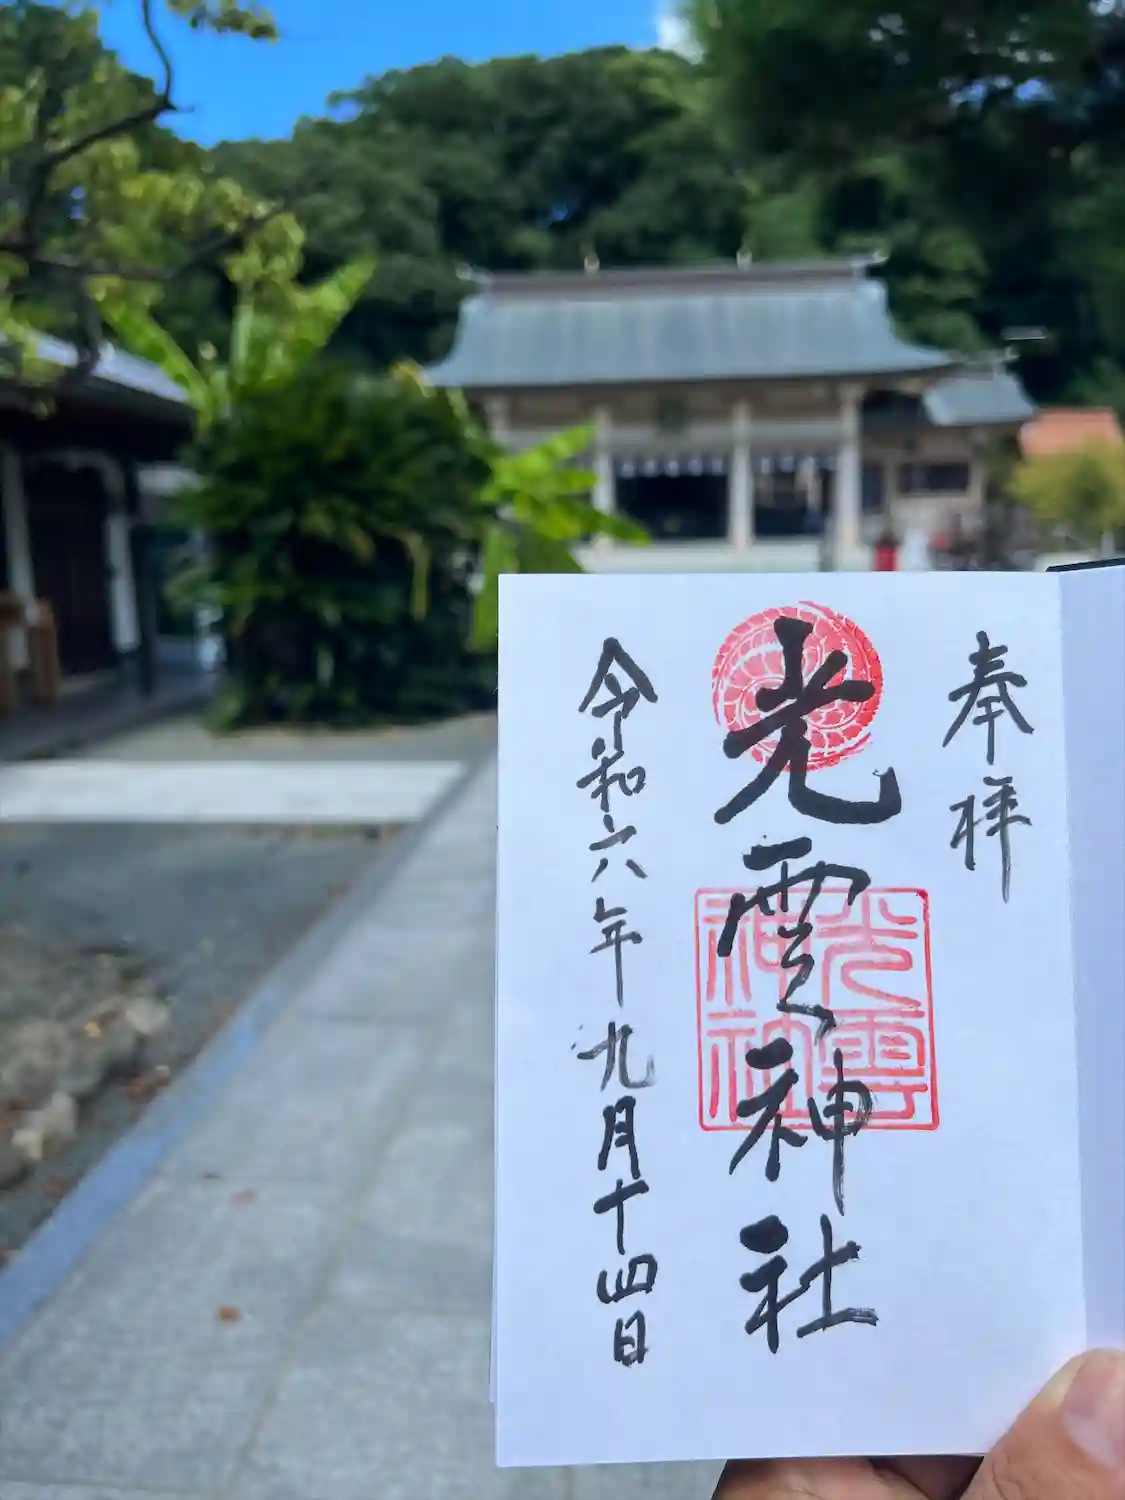 奉拝
光雲神社
光雲神社
令和六年九月十四日